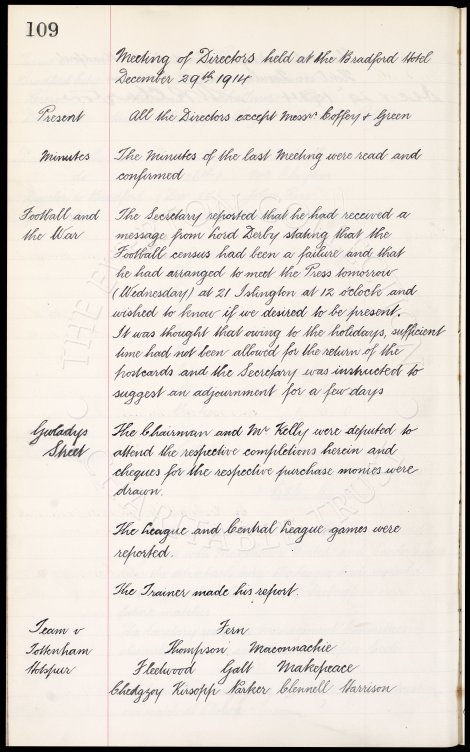 109
Meeting of Directors held at the Bradford Hotel
December 29th 1914
Present All the Directors except Messrs Coffey & Green
Minutes The Minutes of the last Meeting were read and
confirmed
Football and The Secretary reported that he had received a
the War message from Lord Derby stating that the
Football census had been a failure and that
he had arranged to meet the Press tomorrow
(Wednesday) at 21 Islington at 12 o'clock and
wished to know if we desired to be present.
It was thought that owing to the holidays, sufficient
time had not been allowed for the return of the
postcards and the Secretary was instructed to
suggest an adjournment for a few days
Gwladys The Chairman and Mr Kelly were deputed to
Street attend the respective completions herein and
cheques for the respective purchase monies were
drawn.
The League and Central League games were
reported.
The Trainer made his report.
Team v Fern
Tottenham Thompson Maconnachie
Hotspur Fleetwood Galt Makepeace
Chedgzoy Kirsopp Parker Clennell Harrison